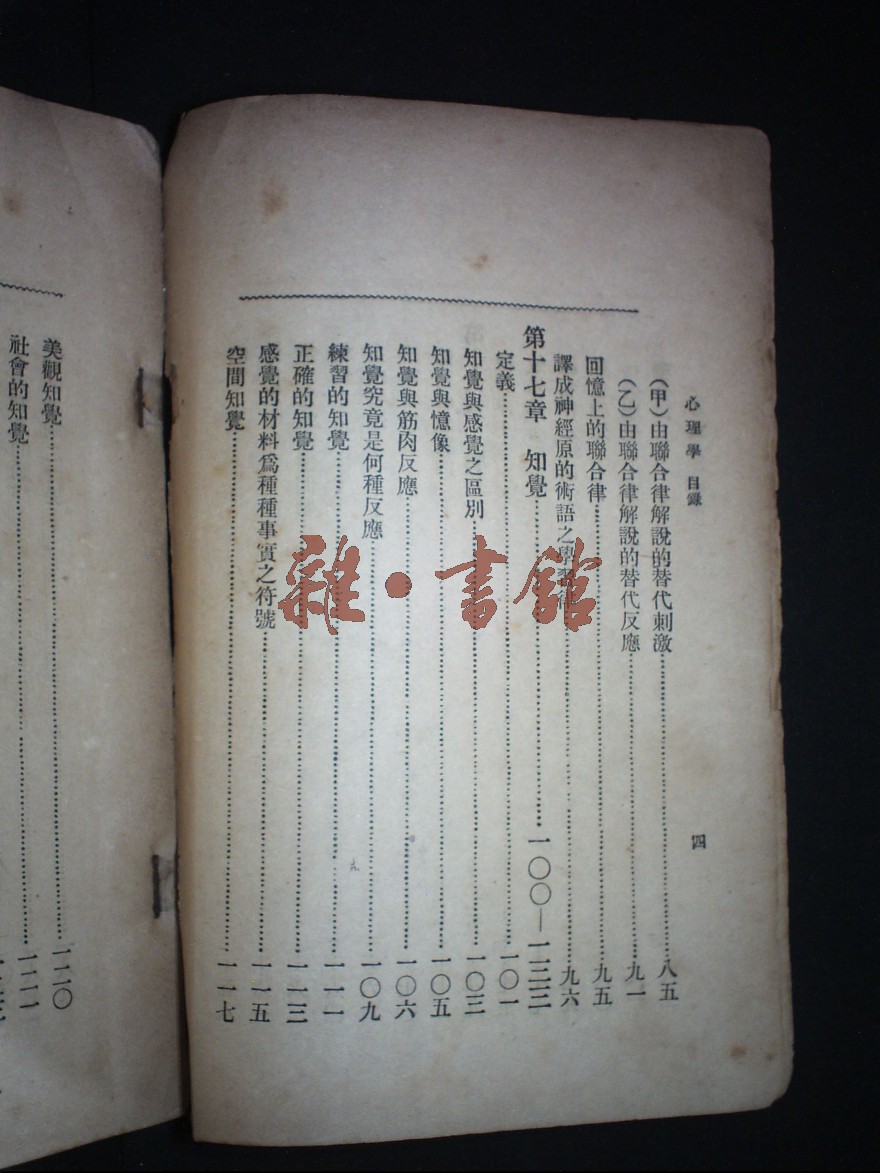 心理學 目錄
四
(甲)由聯合律解說的替代刺激……八五
(乙)由聯合律解說的替代反應……九一
回憶上的聯合律……九五
譯成神經原的術語之學習律……九六
第十七章 知覺……一〇〇—一三二
定義……一〇一
知覺與感覺之區別……一〇三
知覺與憶像……一〇五
知覺與筋肉反應……一〇六
知覺究竟是何種反應……一〇九
練習的知覺……一一一
正確的知覺……一一三
感覺的材料爲種種事實之符號……一一五
空間知覺……一一七
美觀知覺……一二〇
社會的知覺……一二一
雜·書館